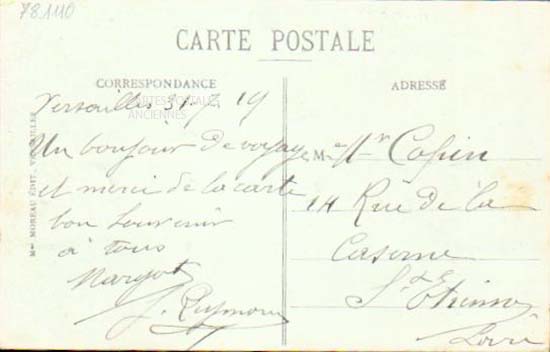 78.1110
CARTE POSTALE
CORRESPONDANCE
ADRESSE
CARTES POSTALES
ANCIENNES
Mme MOREAU ÉDIT. VERSAILLES
Versailles 31.7.19
Un bonjour de voyage
et merci de la carte
bon souvenir
à tous
Margot
J. Raymond
Mr Copin
14 Rue de la
Caserne
St Etienne
Loire